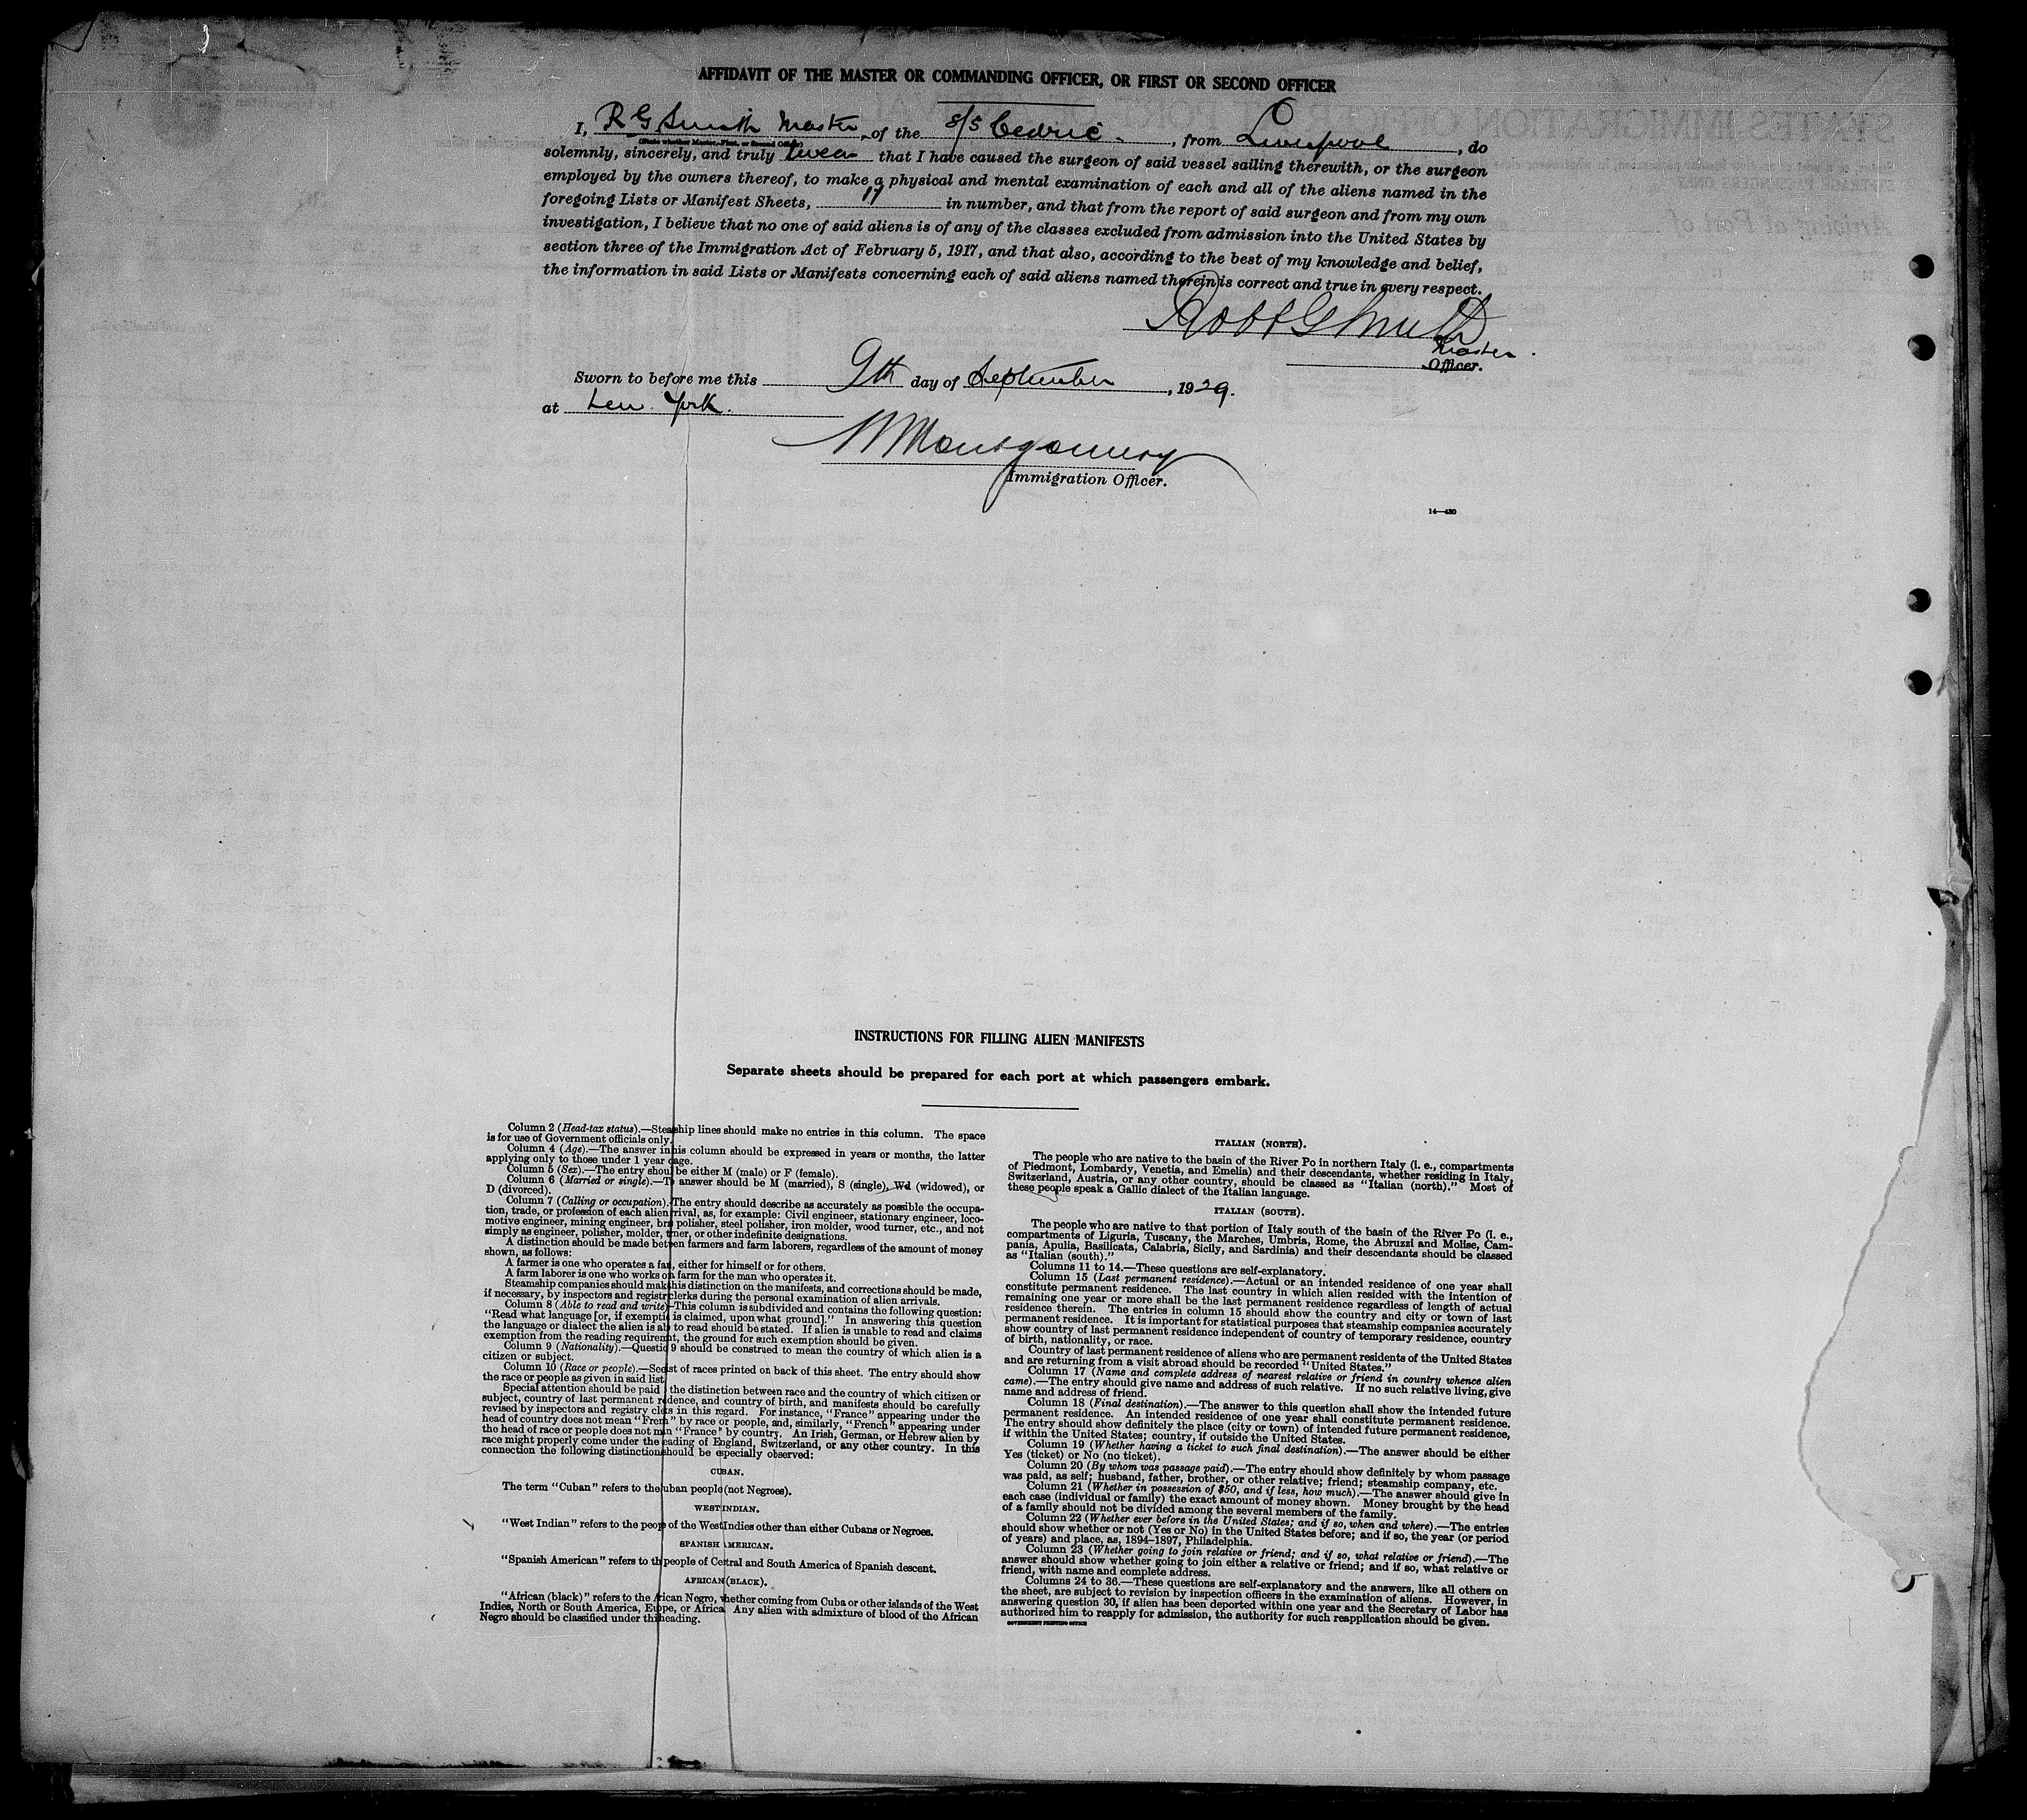 AFFIDAVIT OF THE MASTER OR COMMANDING OFFICER, OR FIRST OR SECOND OFFICER
I, R G Smith Master, of the S/S Cedric, from Liverpool, do
(State whether Master, First, or Second Officer)
solemnly, sincerely, and truly swear that I have caused the surgeon of said vessel sailing therewith, or the surgeon
employed by the owners thereof, to make a physical and mental examination of each and all of the aliens named in the
foregoing Lists or Manifest Sheets, 17 in number, and that from the report of said surgeon and from my own
investigation, I believe that no one of said aliens is of any of the classes excluded from admission into the United States by
section three of the Immigration Act of February 5, 1917, and that also, according to the best of my knowledge and belief,
the information in said Lists or Manifests concerning each of said aliens named therein is correct and true in every respect.
Robt G Smith
Master.
Officer.
Sworn to before me this 9th day of September, 1929.
at New York.
Montgomery
Immigration Officer.
14—430
INSTRUCTIONS FOR FILLING ALIEN MANIFESTS
Separate sheets should be prepared for each port at which passengers embark.
Column 2 (Head-tax status).—Steamship lines should make no entries in this column. The space
is for use of Government officials only.
Column 4 (Age).—The answer in this column should be expressed in years or months, the latter
applying only to those under 1 year age.
Column 5 (Sex).—The entry should be either M (male) or F (female).
Column 6 (Married or single).—The answer should be M (married), S (single), Wd (widowed), or
D (divorced).
Column 7 (Calling or occupation).—The entry should describe as accurately as possible the occupa-
tion, trade, or profession of each alien arrival, as, for example: Civil engineer, stationary engineer, loco-
motive engineer, mining engineer, brass polisher, steel polisher, iron molder, wood turner, etc., and not
simply as engineer, polisher, molder, turner, or other indefinite designations.
A distinction should be made between farmers and farm laborers, regardless of the amount of money
shown, as follows:
A farmer is one who operates a farm, either for himself or for others.
A farm laborer is one who works on a farm for the man who operates it.
Steamship companies should make this distinction on the manifests, and corrections should be made,
if necessary, by inspectors and registry clerks during the personal examination of alien arrivals.
Column 8 (Able to read and write).—This column is subdivided and contains the following question:
"Read what language [or, if exemption is claimed, upon what ground]." In answering this question
the language or dialect the alien is able to read should be stated. If alien is unable to read and claims
exemption from the reading requirement, the ground for such exemption should be given.
Column 9 (Nationality).—Question 9 should be construed to mean the country of which alien is a
citizen or subject.
Column 10 (Race or people).—See list of races printed on back of this sheet. The entry should show
the race or people as given in said list.
Special attention should be paid to the distinction between race and the country of which citizen or
subject, country of last permanent residence, and country of birth, and manifests should be carefully
revised by inspectors and registry clerks in this regard. For instance, "France" appearing under the
head of country does not mean "French" by race or people, and, similarly, "French" appearing under
the head of race or people does not mean "France" by country. An Irish, German, or Hebrew alien by
race might properly come under the heading of England, Switzerland, or any other country. In this
connection the following distinctions should be especially observed:
CUBAN.
The term "Cuban" refers to the Cuban people (not Negroes).
WEST INDIAN.
"West Indian" refers to the people of the West Indies other than either Cubans or Negroes.
SPANISH AMERICAN.
"Spanish American" refers to the people of Central and South America of Spanish descent.
AFRICAN (BLACK).
"African (black)" refers to the African Negro, whether coming from Cuba or other islands of the West
Indies, North or South America, Europe, or Africa. Any alien with admixture of blood of the African
Negro should be classified under this heading.
ITALIAN (NORTH).
The people who are native to the basin of the River Po in northern Italy (i. e., compartments
of Piedmont, Lombardy, Venetia, and Emelia) and their descendants, whether residing in Italy,
Switzerland, Austria, or any other country, should be classed as "Italian (north)." Most of
these people speak a Gallic dialect of the Italian language.
ITALIAN (SOUTH).
The people who are native to that portion of Italy south of the basin of the River Po (i. e.,
compartments of Liguria, Tuscany, the Marches, Umbria, Rome, the Abruzzi and Molise, Cam-
pania, Apulia, Basilicata, Calabria, Sicily, and Sardinia) and their descendants should be classed
as "Italian (south)."
Columns 11 to 14.—These questions are self-explanatory.
Column 15 (Last permanent residence).—Actual or an intended residence of one year shall
constitute permanent residence. The last country in which alien resided with the intention of
remaining one year or more shall be the last permanent residence regardless of length of actual
residence therein. The entries in column 15 should show the country and city or town of last
permanent residence. It is important for statistical purposes that steamship companies accurately
show country of last permanent residence independent of country of temporary residence, country
of birth, nationality, or race.
Country of last permanent residence of aliens who are permanent residents of the United States
and are returning from a visit abroad should be recorded "United States."
Column 17 (Name and complete address of nearest relative or friend in country whence alien
came).—The entry should give name and address of such relative. If no such relative living, give
name and address of friend.
Column 18 (Final destination).—The answer to this question shall show the intended future
permanent residence. An intended residence of one year shall constitute permanent residence.
The entry should show definitely the place (city or town) of intended future permanent residence,
if within the United States; country, if outside the United States.
Column 19 (Whether having a ticket to such final destination).—The answer should be either
Yes (ticket) or No (no ticket).
Column 20 (By whom was passage paid).—The entry should show definitely by whom passage
was paid, as self; husband, father, brother, or other relative; friend; steamship company, etc.
Column 21 (Whether in possession of $50, and if less, how much).—The answer should give in
each case (individual or family) the exact amount of money shown. Money brought by the head
of a family should not be divided among the several members of the family.
Column 22 (Whether ever before in the United States; and if so, when and where).—The entries
should show whether or not (Yes or No) in the United States before; and if so, the year (or period
of years) and place, as, 1894–1897, Philadelphia.
Column 23 (Whether going to join relative or friend; and if so, what relative or friend).—The
answer should show whether going to join either a relative or friend; and if so, what relative or
friend, with name and complete address.
Columns 24 to 36.—These questions are self-explanatory and the answers, like all others on
the sheet, are subject to revision by inspection officers in the examination of aliens. However, in
answering question 30, if alien has been deported within one year and the Secretary of Labor has
authorized him to reapply for admission, the authority for such reapplication should be given.
GOVERNMENT PRINTING OFFICE